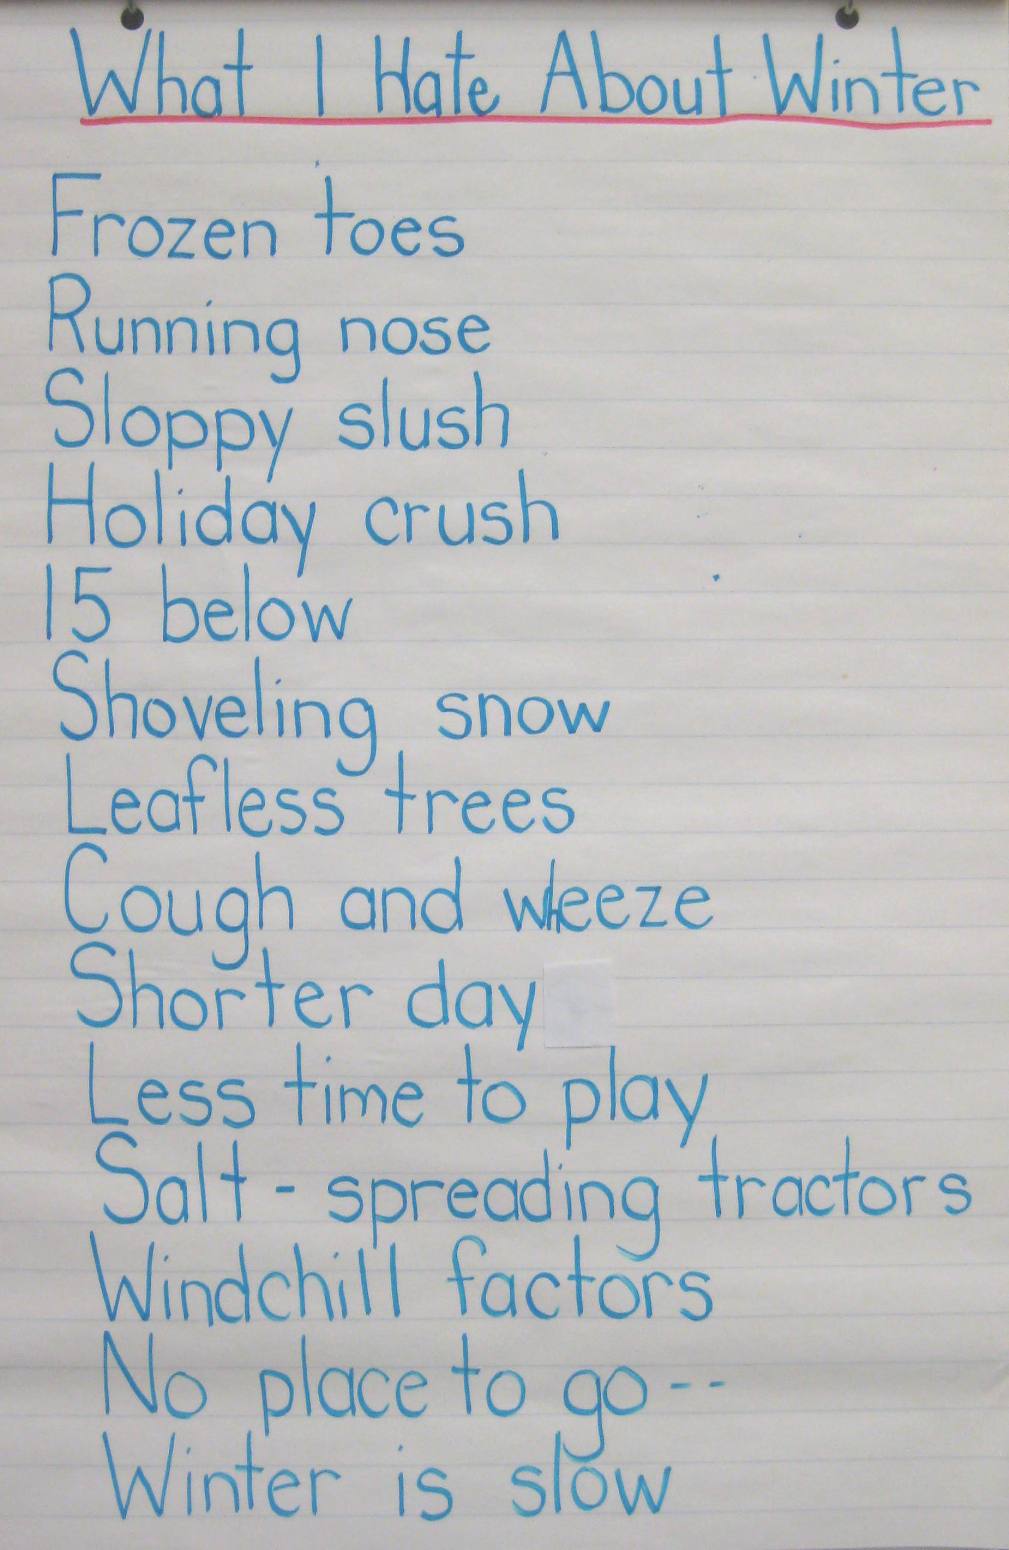 What I Hate About Winter
Frozen toes
Running nose
Sloppy slush
Holiday crush
15 below
Shoveling snow
Leafless trees
Cough and wheeze
Shorter day
Less time to play
Salt - spreading tractors
Windchill factors
No place to go --
Winter is slow